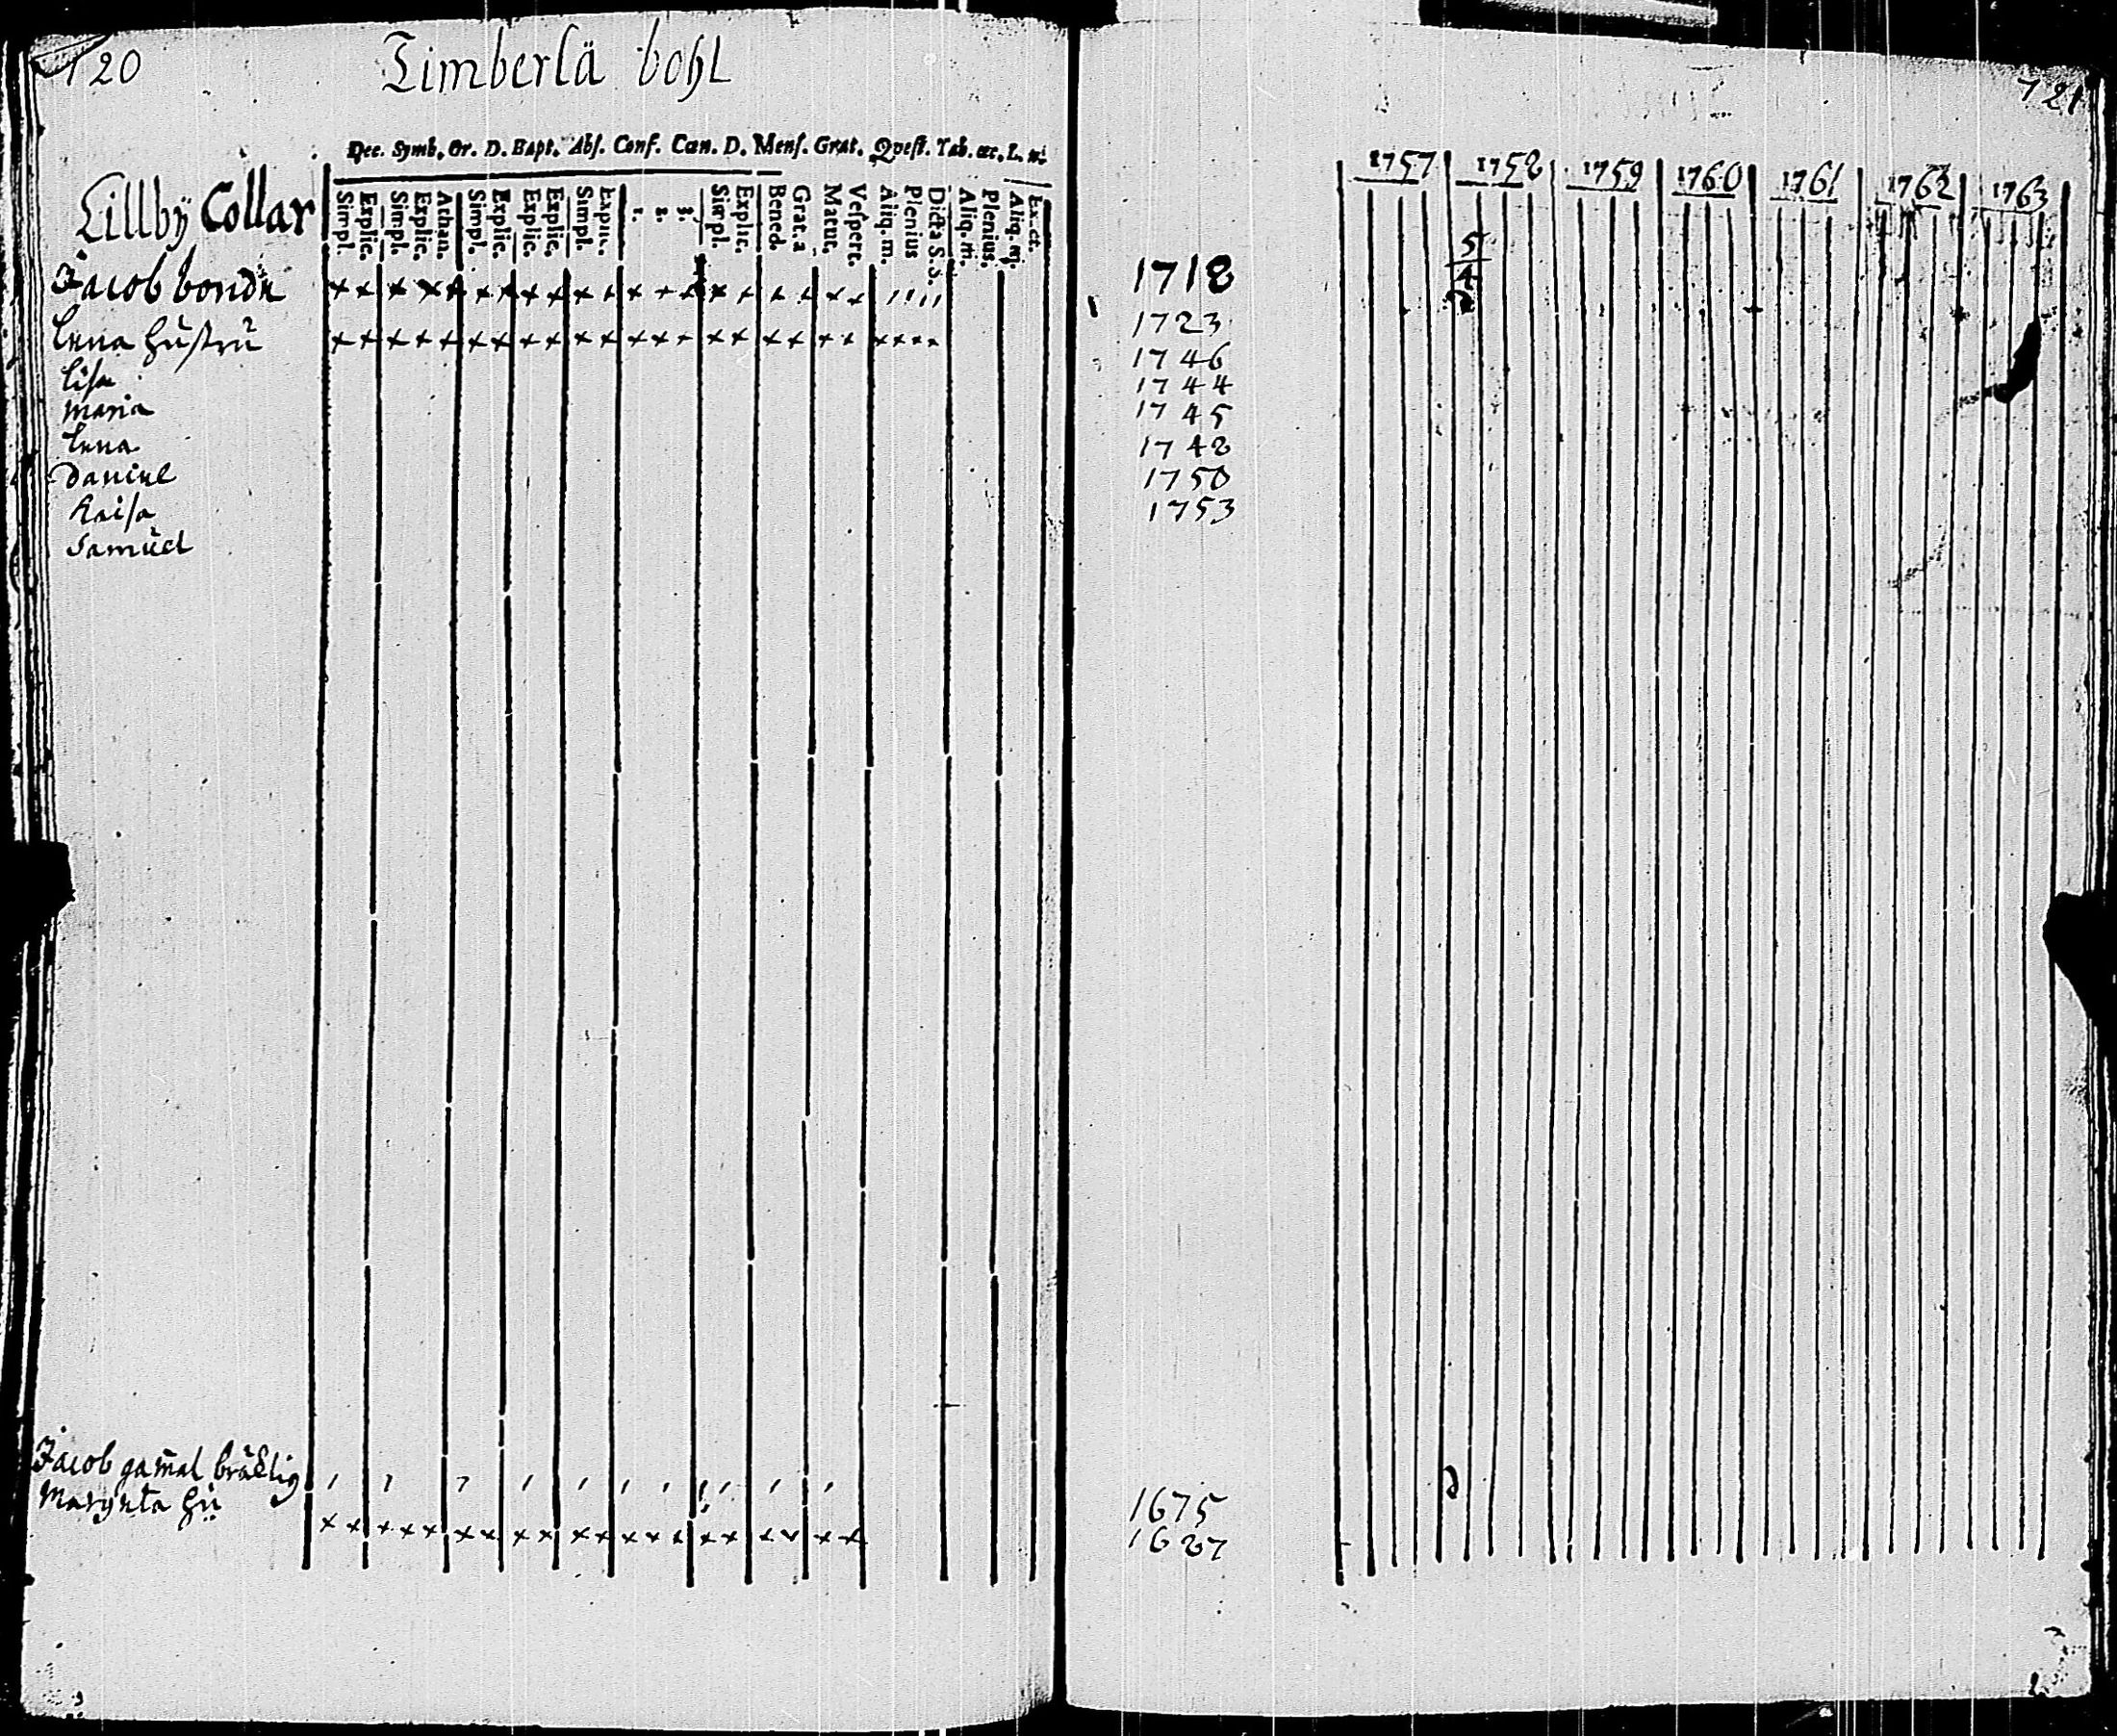 120
Timberlä bohl
Dec. Symb. Or. D. Bapt. Abs. Conf. Cœn. D. Mens. Grat. Qvest. Tab. œc. L. n.
Lillbÿ Collar
Simpl. Explic. Simpl. Explic. Athan. Simpl. Explic. Explic. Explic. Simpl. Explic. 1. 2. 3. Simpl. Explic. Bened. Grat. a Matut. Vespert. Aliq. m. Plenius Dicta S. S. Aliq. m. Plenius. Aliq. m. Exact.
Jacob bonde
Lena hustru
Lisa
Maria
Lena
Daniel
Kaisa
Samuel
Jacob gam̄al bräcklig
Margeta hu
121
1757 1758 1759 1760 1761 1762 1763
1718
5/4
1723
1746
1744
1745
1748
1750
1753
1675
1687